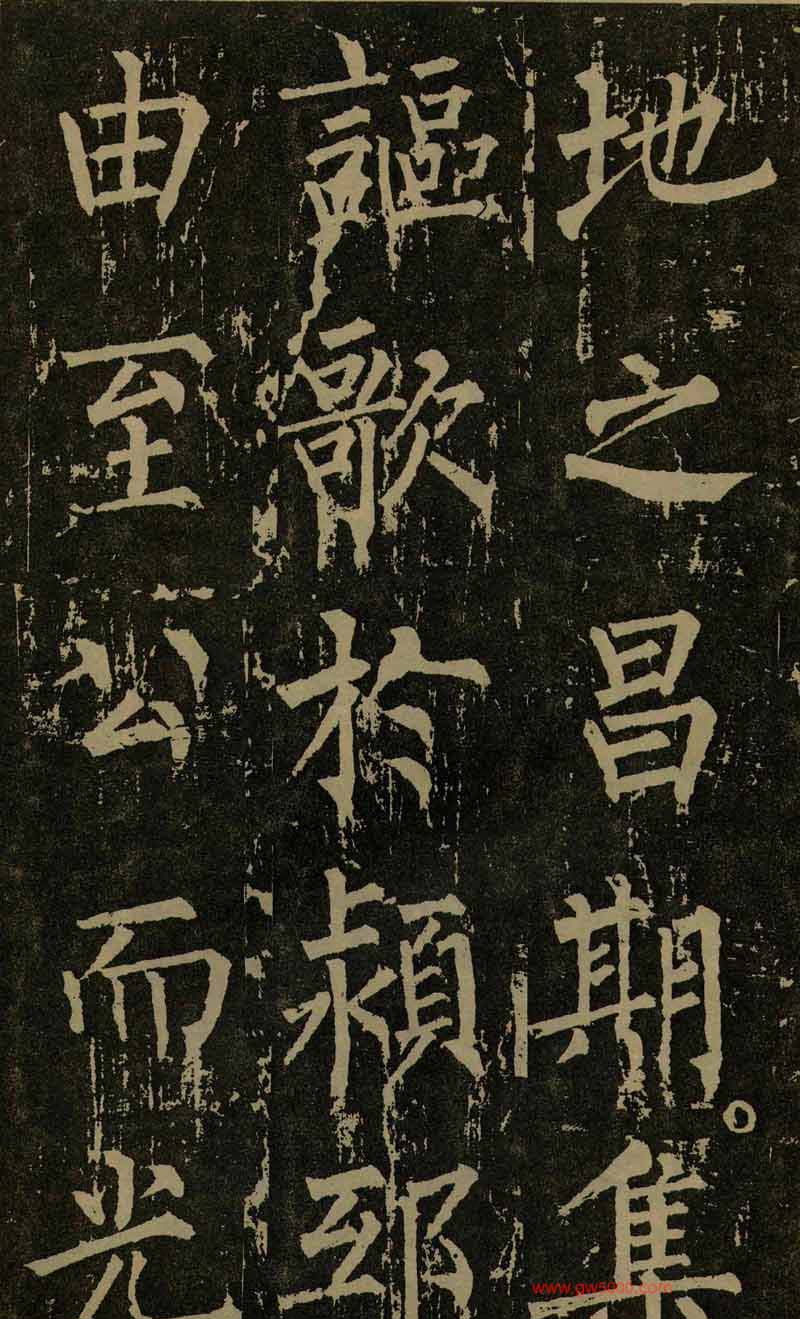 地之昌期。集
謳歌於潁邸
由至公而光
www.gw5000.com